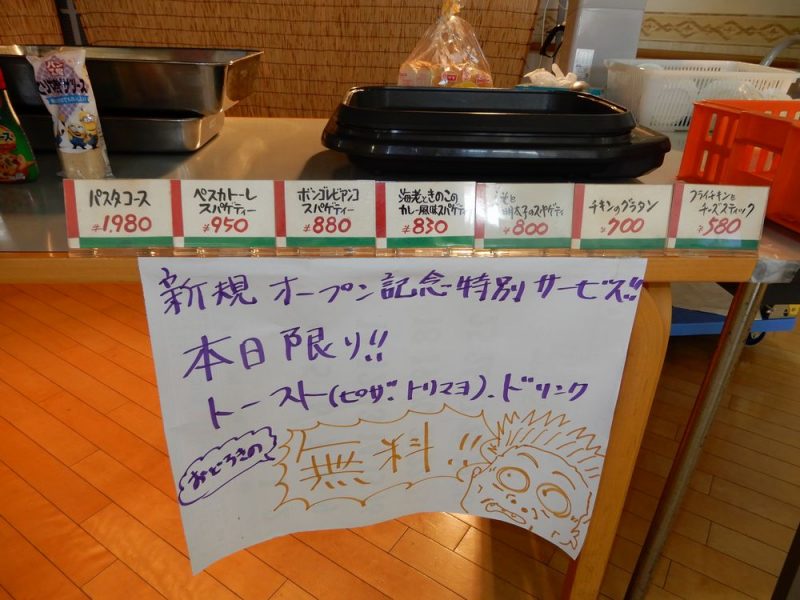 パスタコース
¥1,980
ペスカトーレ
スパゲティー
¥950
ボンゴレビアンコ
スパゲティー
¥880
海老ときのこの
カレー風味スパゲティ
¥830
明太子のスパゲティ
¥800
チキンのグラタン
¥700
フライチキンと
チーズスティック
¥580
新規オープン記念特別サービス!!
本日限り!!
トースト(ピザ、トリマヨ)、ドリンク
おどろきの
無料!!